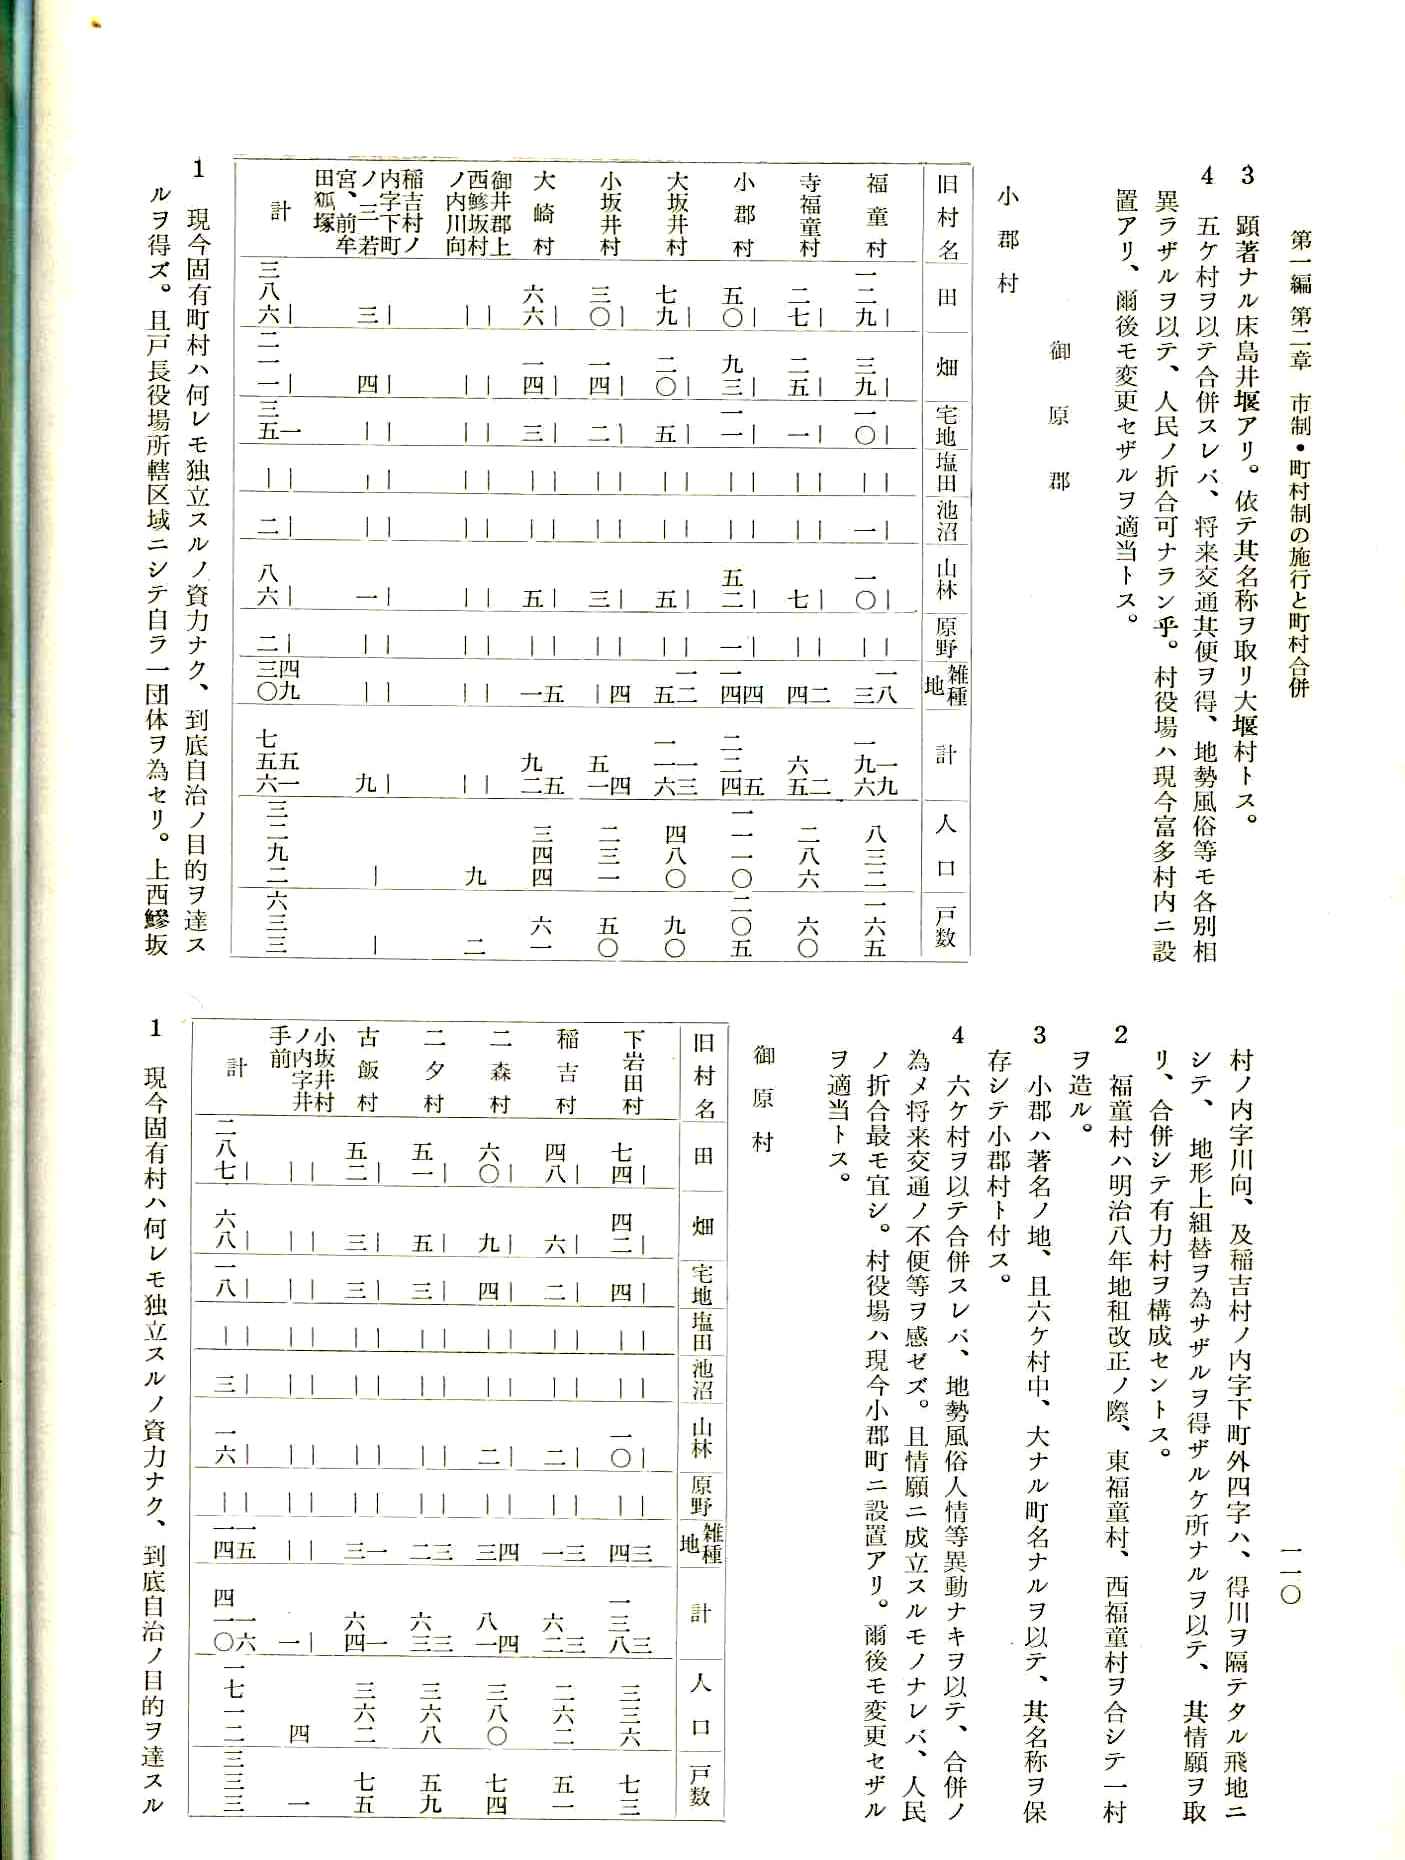 第一編 第二章 市制・町村制の施行と町村合併
一一〇
3 顕著ナル床島井堰アリ。依テ其名称ヲ取リ大堰村トス。
4 五ケ村ヲ以テ合併スレバ、将来交通其便ヲ得、地勢風俗等モ各別相
異ラザルヲ以テ、人民ノ折合可ナラン乎。村役場ハ現今富多村内ニ設
置アリ、爾後モ変更セザルヲ適当トス。
御原郡
小郡村
旧村名 田 畑 宅地 塩田 池沼 山林 原野 雑種地 計 人口 戸数
福童村 一二九| 三九| 一〇| || 一| 一〇| || 三一八 一九六一九 八三二 一六五
寺福童村 二七| 二五| 一| || || 七| || 四二 六五二 二八六 六〇
小郡村 五〇| 九三| 一一| || || 五二| 一| 一四四 二二四五 一一一〇 二〇五
大坂井村 七九| 二〇| 五| || || 五| || 五一二 一一六一三 四八〇 九〇
小坂井村 三〇| 一四| 二| || || 三| || |四 五一四 二三一 五〇
大崎村 六六| 一四| 三| || || 五| || 一五 九二五 三四四 六一
御井郡上
西鰺坂村
ノ内川向 || || || || || || || || || 九 二
稲吉村ノ
内字下町
ノ三若
宮、前牟
田狐塚 三| 四| || || || 一| || || 九| | |
計 三八六| 二一一| 三五一 || 二| 八六| 二| 三〇四九 七五六五一 三二九二 六三三
1 現今固有町村ハ何レモ独立スルノ資力ナク、到底自治ノ目的ヲ達ス
ルヲ得ズ。且戸長役場所轄区域ニシテ自ラ一団体ヲ為セリ。上西鰺坂
村ノ内字川向、及稲吉村ノ内字下町外四字ハ、得川ヲ隔テタル飛地ニ
シテ、地形上組替ヲ為サザルヲ得ザルケ所ナルヲ以テ、其情願ヲ取
リ、合併シテ有力村ヲ構成セントス。
2 福童村ハ明治八年地租改正ノ際、東福童村、西福童村ヲ合シテ一村
ヲ造ル。
3 小郡ハ著名ノ地、且六ケ村中、大ナル町名ナルヲ以テ、其名称ヲ保
存シテ小郡村ト付ス。
4 六ケ村ヲ以テ合併スレバ、地勢風俗人情等異動ナキヲ以テ、合併ノ
為メ将来交通ノ不便等ヲ感ゼズ。且情願ニ成立スルモノナレバ、人民
ノ折合最モ宜シ。村役場ハ現今小郡町ニ設置アリ。爾後モ変更セザル
ヲ適当トス。
御原村
旧村名 田 畑 宅地 塩田 池沼 山林 原野 雑種地 計 人口 戸数
下岩田村 七四| 四二| 四| || || 一〇| || 四三 一三八三 三三六 七三
稲吉村 四八| 六| 二| || || 二| || 一三 六二三 二六二 五一
二森村 六〇| 九| 四| || || 二| || 三四 八一四 三八〇 七四
二夕村 五一| 五| 三| || || || || 二三 六三三 三六八 五九
古飯村 五二| 三| 三| || || || || 三一 六四一 三六二 七五
小坂井村
ノ内字井
手前 || || || || || || || || 一| 四 一
計 二八七| 六八| 一八| || 三| 一六| || 一四一五 四一〇一六 一七一二 三三三
1 現今固有村ハ何レモ独立スルノ資力ナク、到底自治ノ目的ヲ達スル